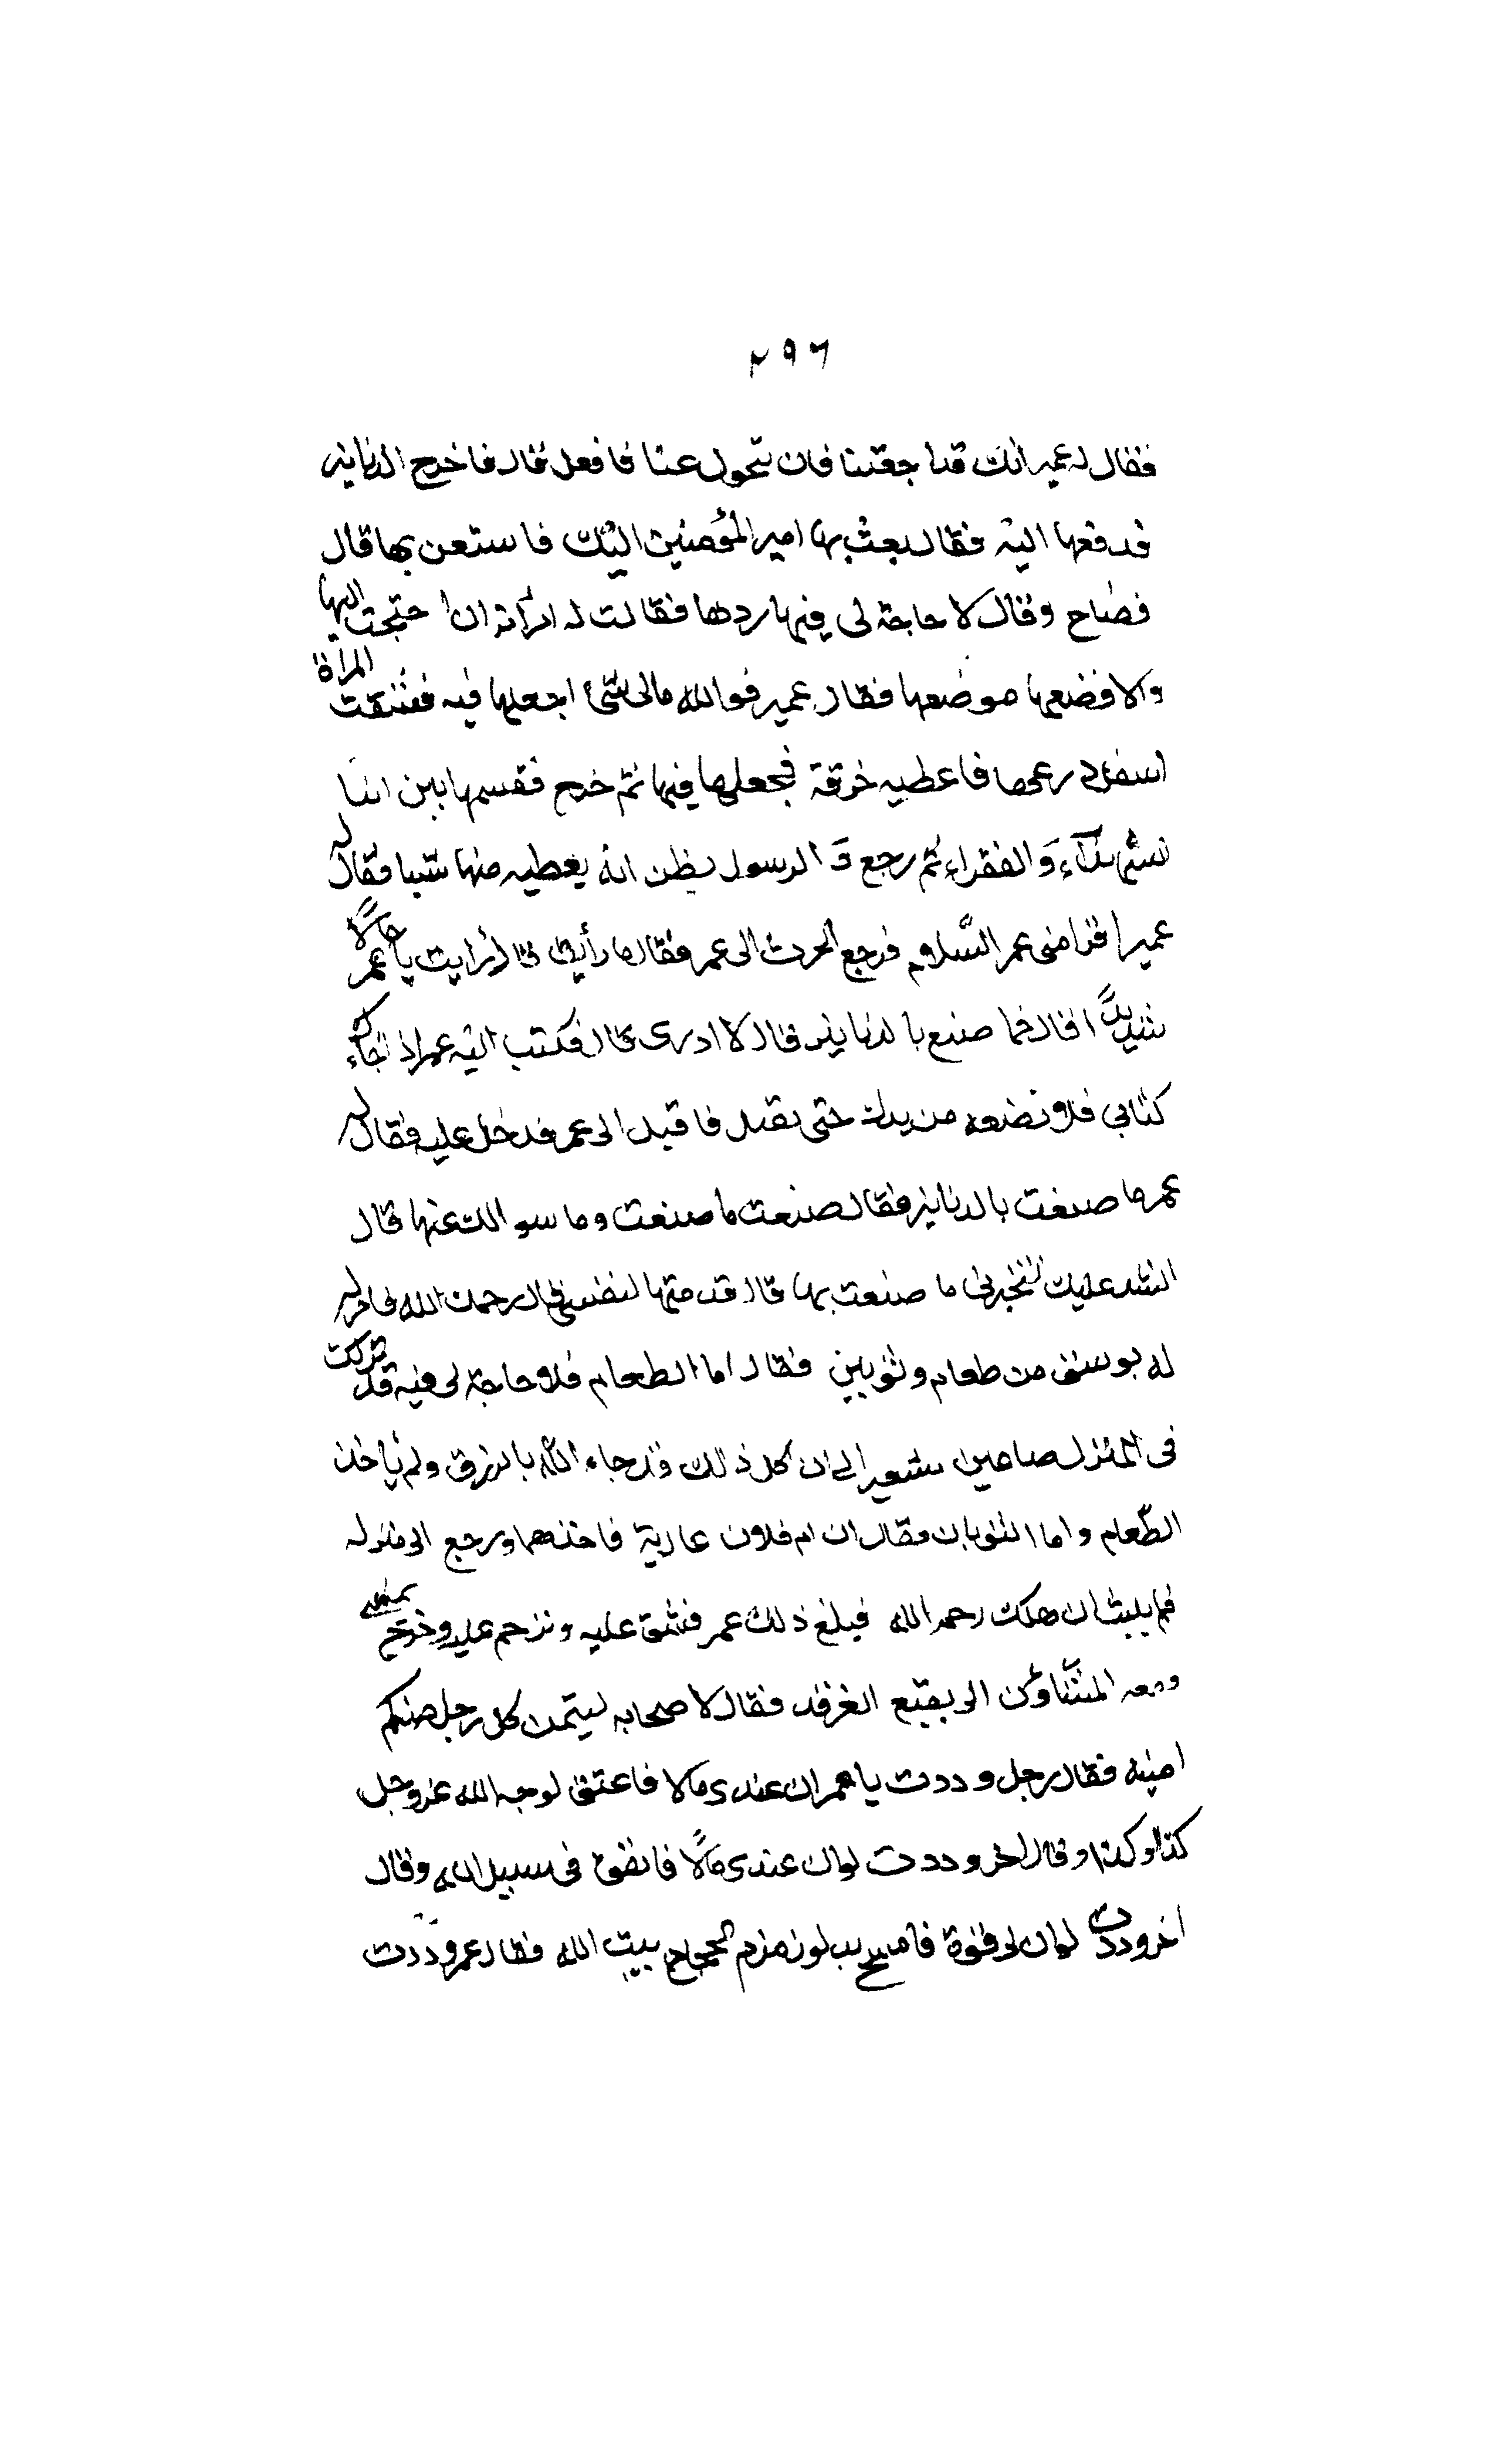 ٢٩٦
فقال له عمير انك قد اجعتنا فان تحول عنا فافعل قال فاخرج الدنانير
فدفعها اليه فقال بعث بها امير المؤمنين اليك فاستعن بها قال
فصاح وقال لا حاجة لى فيها ردها فقالت له امرأته ان احتجت اليها
والا فضعها موضعها فقال عمير فوالله مالى شئ اجعلها فيه فشقت المرأة
اسفل درعها فاعطيه خرقة فجعلها فيها ثم خرج فقسمها بين ابنا
الشهدآء وَالفقراء ثم رجع وَ الرسول يظن انه يعطيه منها شيا فقال له
عمير اقرا منى عمر السّلام فرجع الحرث الى عمر فقال ما رأيت قال رايت يا عمر حالًا
شديدًا قال فما صنع بالدنانير قال لا ادرى قال فكتب اليه عمر اذا جاءك
كتابي فلا تضعه من يدك حتى تقبل فاقبل الى عمر فدخل عليه فقال له
عمر ما صنعت بالدنانير فقال صنعت ما صنعت وما سوالك عنها قال
انشد عليك لتخبرنى ما صنعت بها قال قدمتها لنفسى قال رحمك الله فامر له
له بوسق من طعام وثوبين فقال اما الطعام فلا حاجة لى فيه قد تركت
فى المنزل صاعين شعير الى ان اكل ذلك قد جاء الله بالرزق ولم ياخذ
الطّعام واما الثوبان فقال ان ام فلان عارية فاخذهما ورجع الى منزله
فلم يلبث ان هلك رحمه الله فبلغ ذلك عمر فشق عليه وترحم عليه وخرج يمشى
ومعه المشّاؤن الى بقيع الغرقد فقال لاصحابه ليتمن كل رجل منكم
امنية فقال رجل وددت يا عمر ان عندى مالا فاعتق لوجه الله عز وجل
كذا وكذا وقال اخر وددت لو ان عندى مالًا فانفق فى سبيل الله وقال
اخر وددت لو ان لى قوة فامتح بدلو زمزم لحجاج بيت الله فقال عمر وددت